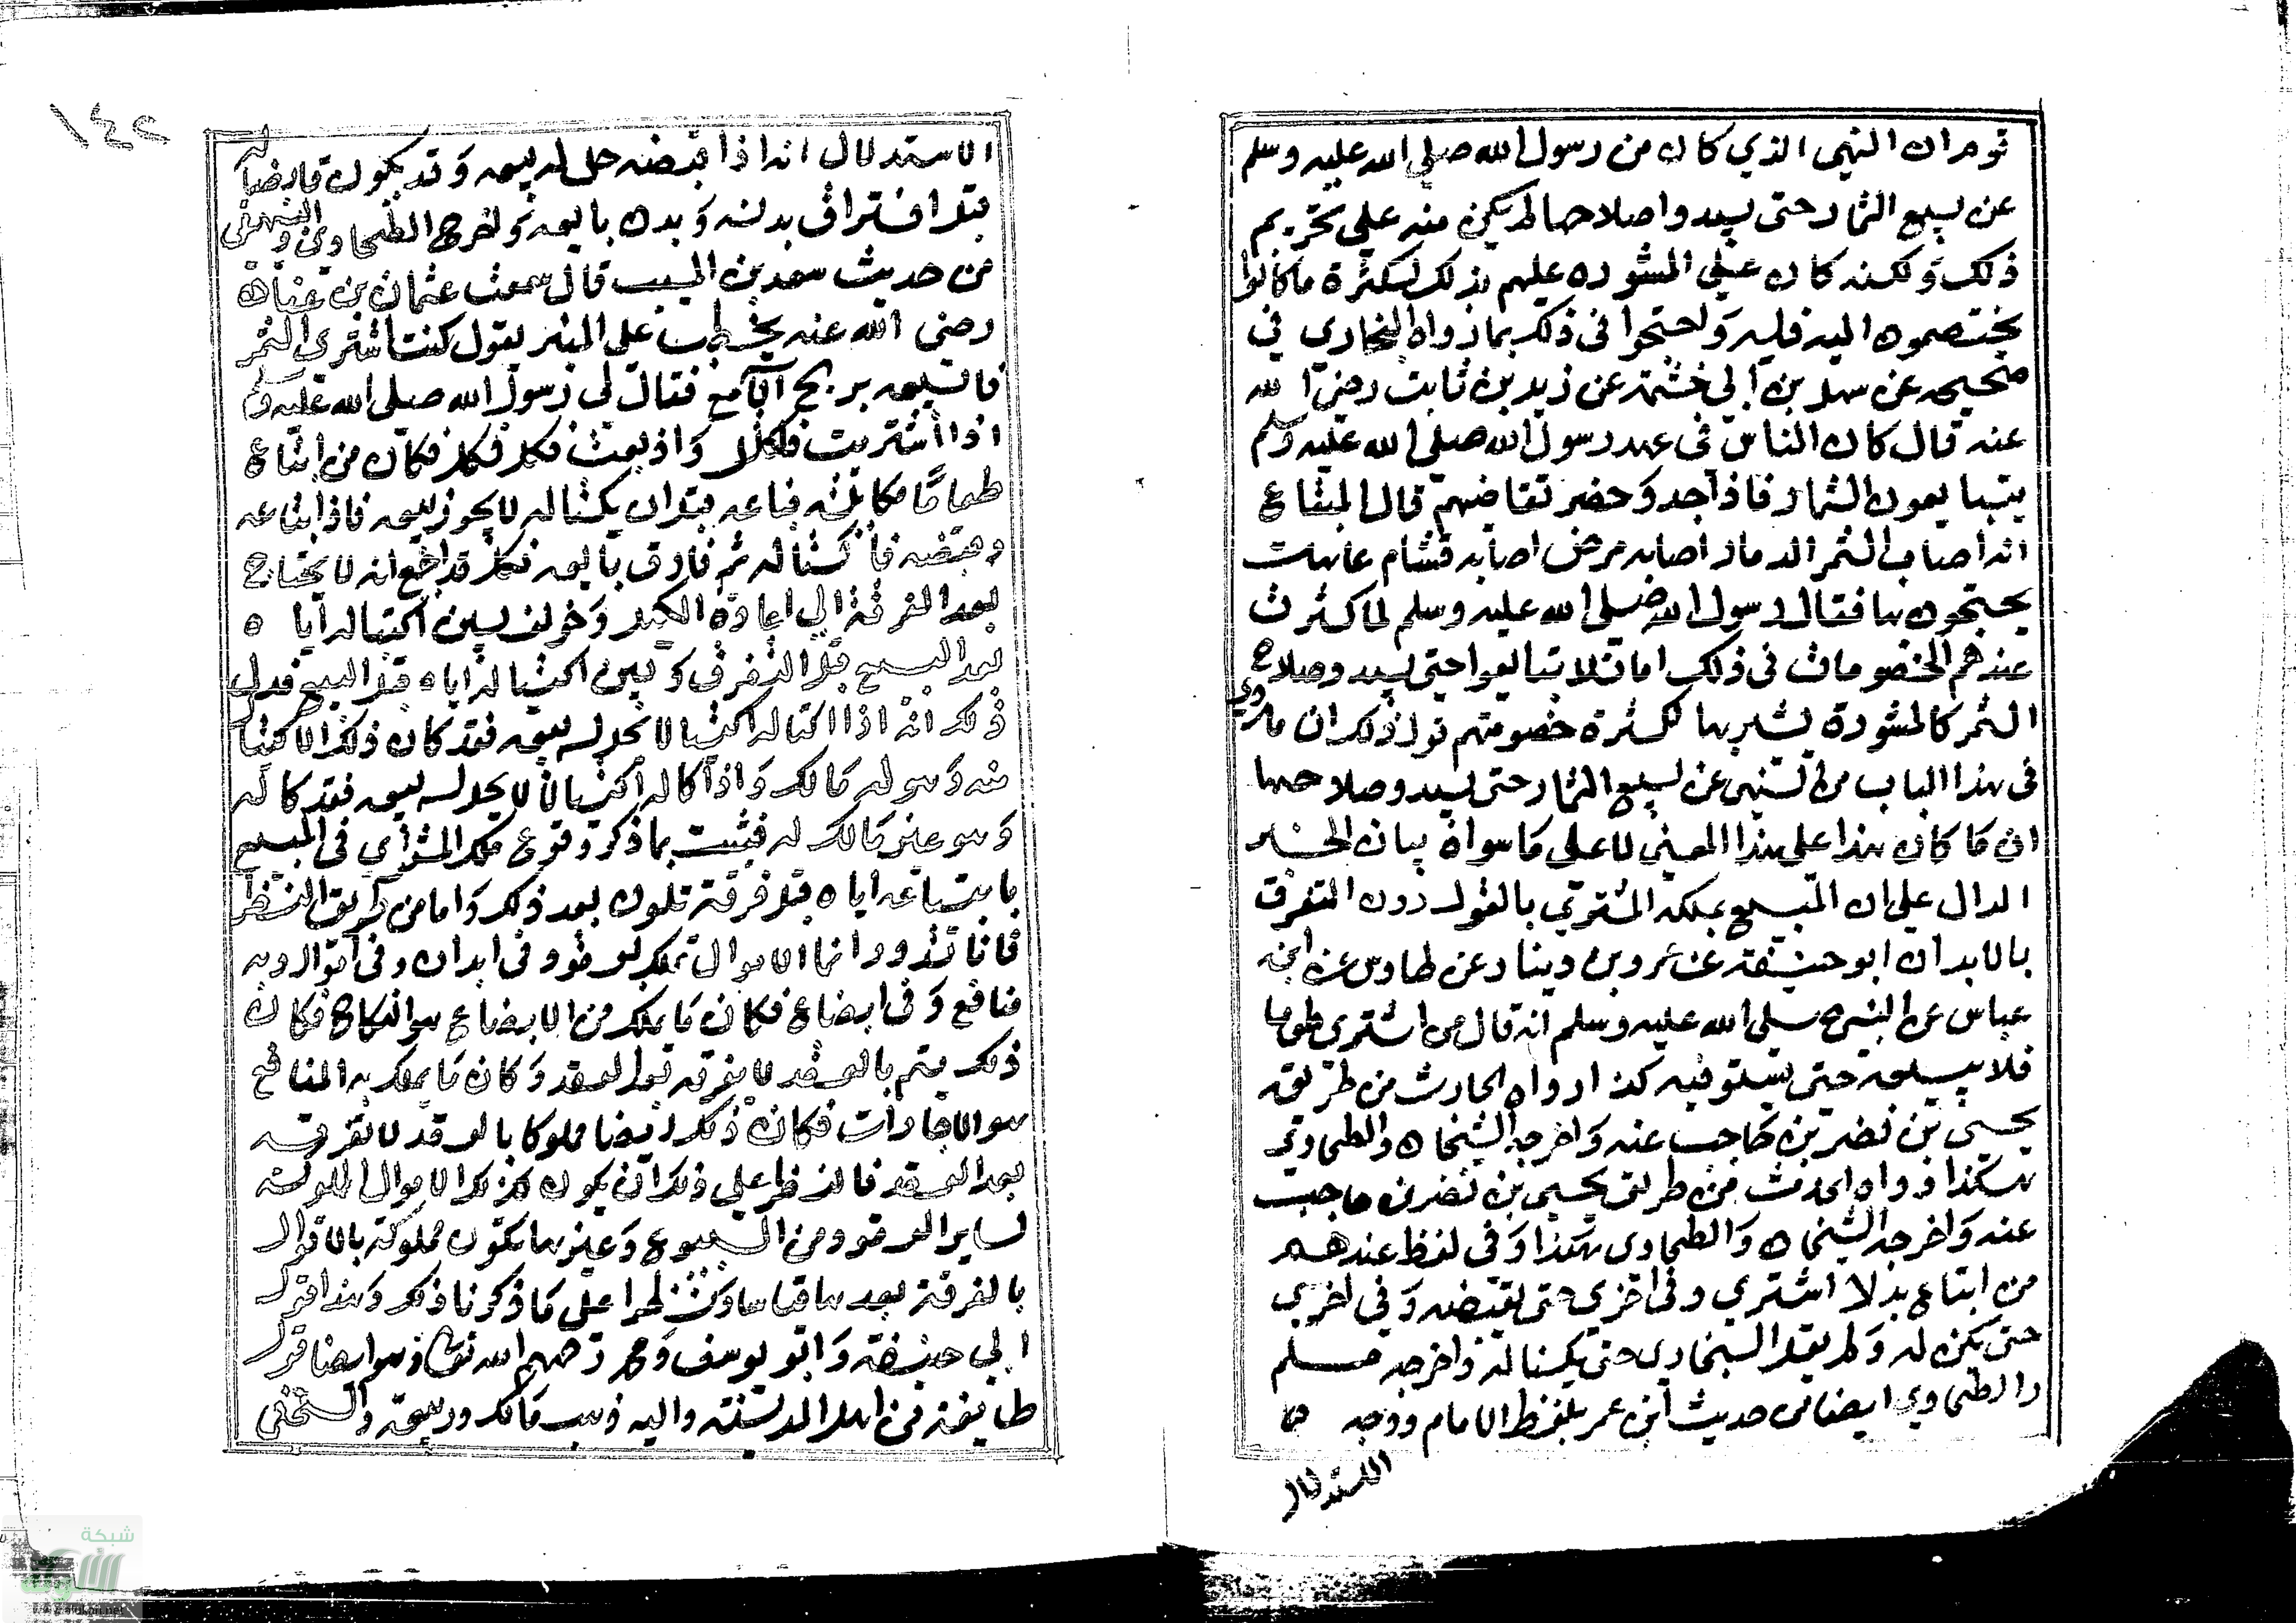 قوم ان النهي الذي كان من رسول الله صلي الله عليه وسلم
عن بيع الثمار حتى يبدو صلاحها لم يكن منه علي تحريم
ذلك ولكنه كان علي المشوره عليهم بذلك لكثرة ما كانوا
يختصمون اليه فيه واحتجوا في ذلك بما رواه البخاري في
صحيحه عن سهل بن ابي خثمة عن زيد بن ثابت رضي الله
عنه قال كان الناس في عهد رسول الله صلى الله عليه وسلم
يتبايعون الثمار فاذا جد وحضر تقاضيهم قال المبتاع
انه اصاب الثمر الدمار اصابه مرض اصابه قشام عاهات
يحتجون بها فقال رسول الله صلى الله عليه وسلم لما كثرت
عندهم الخصومات في ذلك اما فلا تبايعوا حتى يبدو صلاح
الثمر كالمشورة يشير بها لكثرة خصومتهم فدل ذلك ان ما روي
في هذا الباب من النهي عن بيع الثمار حتى يبدو صلاحها
ان ما كان هذا على هذا المعني لا على ما سواه بيان الخبر
الدال علي ان المبيع يملكه المشتري بالقول دون التفرق
بالابدان ابو حنيفة عن عمرو بن دينار عن طاوس عن ابن
عباس عن النبي صلى الله عليه وسلم انه قال من اشترى طعاما
فلا يبيعه حتى يستوفيه كذا رواه الحارث من طريق
يحيى بن نضر بن حاجب عنه واخرجه الشيخان والطحاوي
هكذا رواه الحارث من طريق يحيى بن نضر بن حاجب
عنه واخرجه الشيخان والطحاوي هكذا وفي لفظ عندهم
من ابتاع بدلا اشتري وفي اخري حتى يقبضه وفي اخري
حتى يكتاله ولم يقل البخاري حتى يكتاله واخرجه مسلم
والطحاوي ايضا من حديث ابن عمر بلفظ الامام ووجه
الاستدلال
١٤٢
الاستدلال انه اذا قبضه حل له بيعه وقد يكون قابضا له
قبل افتراق بدنه وبدن بايعه واخرج الطحاوي والبيهقي
من حديث سعيد بن المسيب قال سمعت عثمان بن عفان
رضي الله عنه يخطب على المنبر يقول كنت اشتري التمر
فابيعه بربح الآصع فقال لي رسول الله صلى الله عليه وسلم
اذا اشتريت فاكتل واذا بعت فكل فكان من ابتاع
طعاما مكايلة فباعه قبل ان يكتاله لا يجوز بيعه فاذا ابتاعه
وقبضه فاكتاله ثم فارق بايعه فكل قد اجمع انه لا يحتاج
بعد الفرقة الي اعادة الكيل وخولف بين اكتياله اياه
بعد البيع قبل التفرق وبين اكتياله اياه قبل البيع فدل
ذلك انه اذا اكتاله اكتيالا يحل له بيعه فقد كان ذلك الاكتيال
منه وهو له مالك واذا كاله اكتيالا لا يحل له بيعه فقد كاله
وهو غير مالك له فثبت بما ذكر وقوع ملك المشتري في المبيع
بابتياعه اياه قبل فرقة تكون بعد ذلك واما من طريق النظر
فانا الاموال تملك بعقود في ابدان وفي اموال وفي
منافع وفي ابضاع فكان ما يملك من الابضاع هو النكاح فكان
ذلك يتم بالعقد لا بفرقة بعد العقد وكان ما يملك به المنافع
هو الاجارات فكان ذلك ايضا مملوكا بالعقد لا بفرقة
بعد العقد فالنظر على ذلك ان يكون كذلك الاموال المملوكة
بساير العقود من البيوع وغيرها تكون مملوكة بالاقوال
بالفرقة بعدها قياسا ونظرا على ما ذكرنا ذلك وهذا قول
ابي حنيفة وابو يوسف ومحمد رحمهم الله تعالى وهو ايضا قول
طايفة من اهل المدينة واليه ذهب مالك وربيعة والنخعي
شبكة